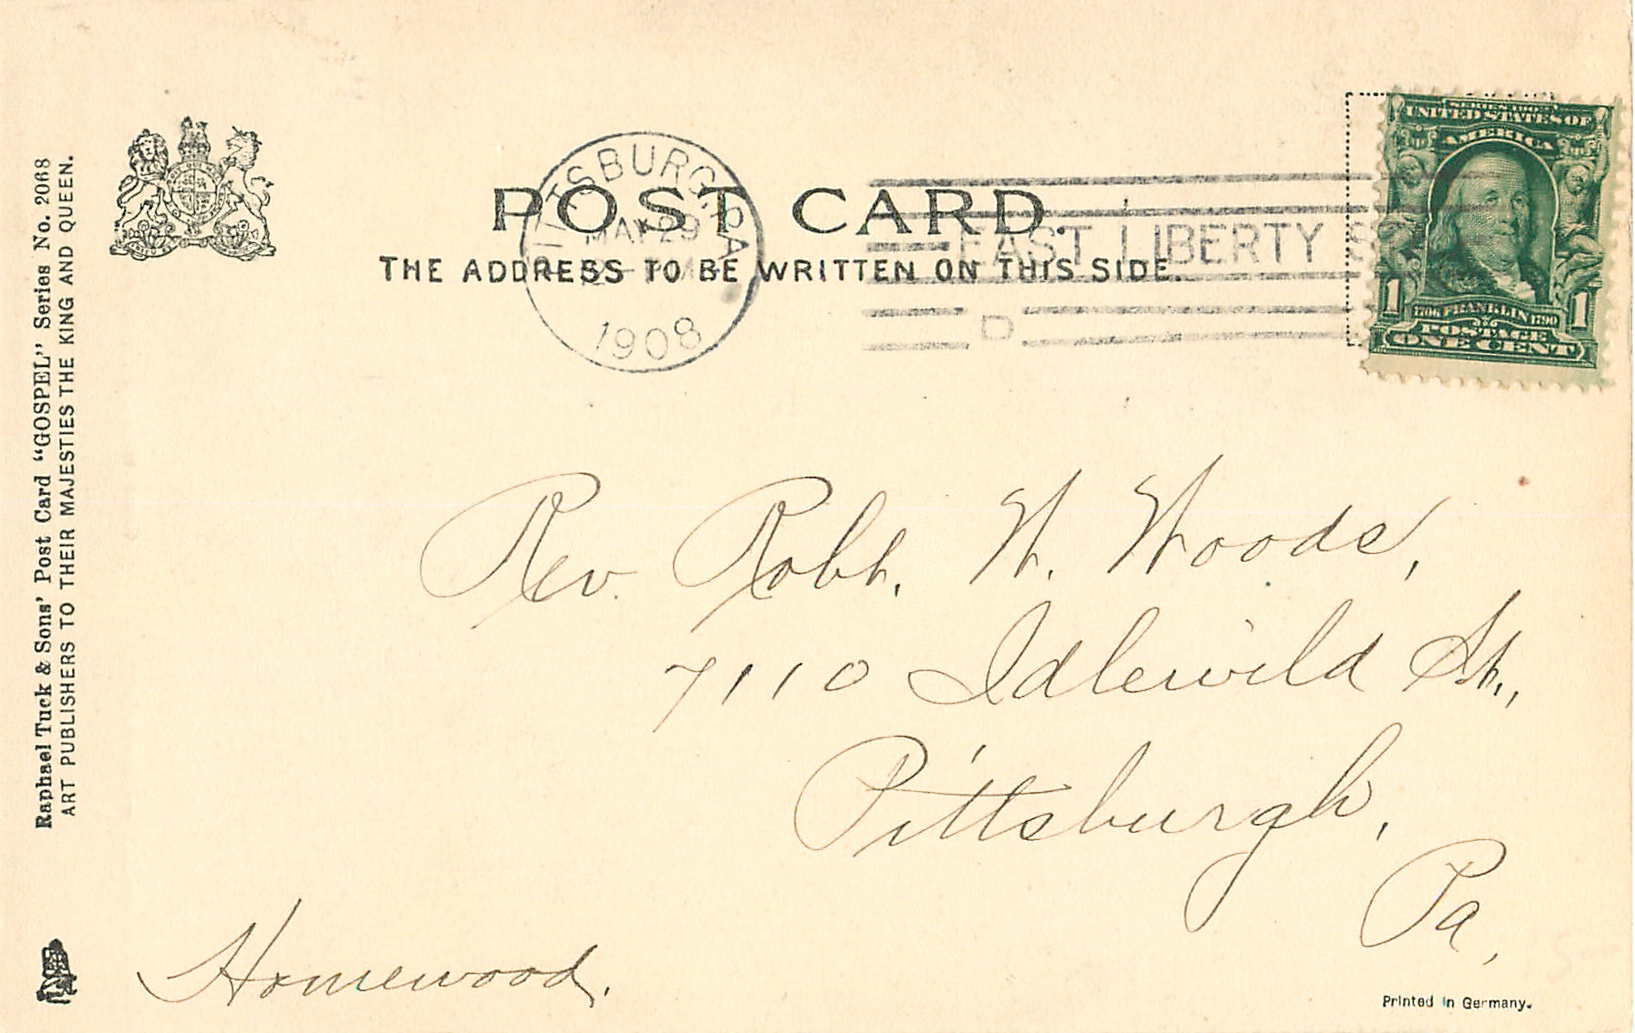 POST CARD.
THE ADDRESS TO BE WRITTEN ON THIS SIDE.
PITTSBURG, PA
MAY 29
1908
EAST LIBERTY
D
SERIES 1902
UNITED STATES OF
AMERICA
1 1706 FRANKLIN 1790 1
POSTAGE
ONE CENT
Raphael Tuck & Sons' Post Card "GOSPEL" Series No. 2068
ART PUBLISHERS TO THEIR MAJESTIES THE KING AND QUEEN.
Rev. Robt. W. Woods,
7110 Idlewild St.,
Pittsburgh,
Pa,
Homewood.
Printed in Germany.